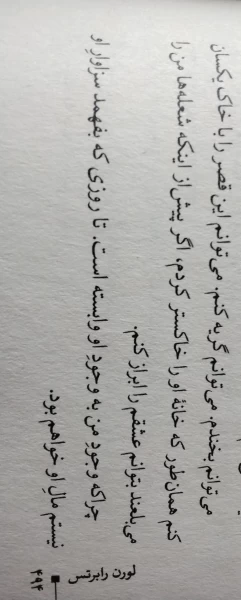 می‌توانم بخندم. می‌توانم گریه کنم. می‌توانم این قصر را با خاک یکسان
کنم همان‌طور که خانهٔ او را خاکستر کردم، اگر پیش از اینکه شعله‌ها من را
می‌بلعند بتوانم عشقم را ابراز کنم.
چراکه وجودِ من به وجودِ او وابسته است. تا روزی که بفهمد سزاوارِ او
نیستم مالِ او خواهم بود.
لورن رابرتس ■ ۴۹۴